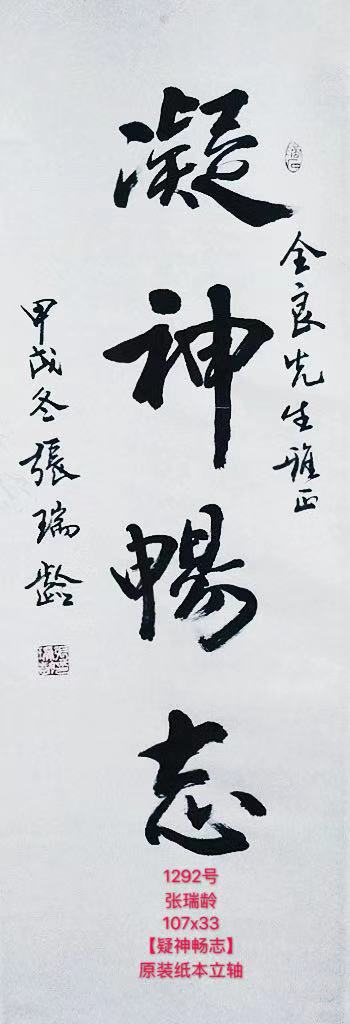 金良先生雅正
凝神暢志
甲戌冬張瑞齡
1292号
张瑞龄
107x33
【疑神畅志】
原装纸本立轴